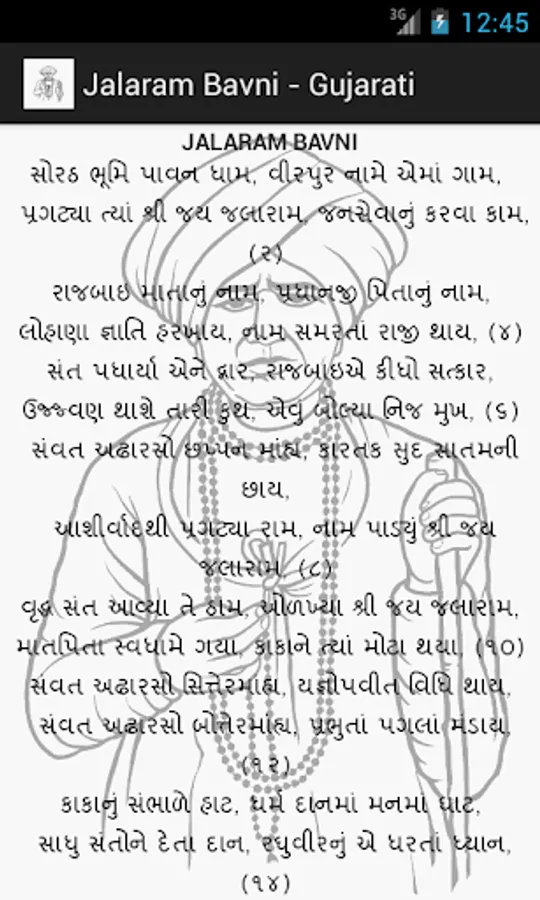 3G
12:45
Jalaram Bavni - Gujarati
JALARAM BAVNI
સોરઠ ભૂમિ પાવન ધામ, વીરપુર નામે એમાં ગામ,
પ્રગટ્યા ત્યાં શ્રી જય જલારામ, જનસેવાનું કરવા કામ,
(૨)
રાજબાઇ માતાનું નામ, પ્રધાનજી પિતાનું નામ,
લોહાણા જ્ઞાતિ હરખાય, નામ સમરતાં રાજી થાય, (૪)
સંત પધાર્યા એને દ્વાર, રાજબાઇએ કીધો સત્કાર,
ઉજ્જવણ થાશે તારી કુથ, એવું બોલ્યા નિજ મુખ, (૬)
સંવત અઢારસો છપ્પન માંહ્ય, કારતક સુદ સાતમની
છાય,
આશીર્વાદથી પ્રગટ્યા રામ, નામ પાડ્યું શ્રી જય
જલારામ, (૮)
વૃદ્ધ સંત આવ્યા તે ઠામ, ઓળખ્યા શ્રી જય જલારામ,
માતપિતા સ્વધામે ગયા, કાકાને ત્યાં મોટા થયા, (૧૦)
સંવત અઢારસો સિત્તેરમાંહ્ય, યજ્ઞોપવીત વિધિ થાય,
સંવત અઢારસો બોત્તેરમાંહ્ય, પ્રભુતાં પગલાં મંડાય,
(૧૨)
કાકાનું સંભાળે હાટ, ધર્મ દાનમાં મનમાં ઘાટ,
સાધુ સંતોને દેતા દાન, રઘુવીરનું એ ધરતાં ધ્યાન,
(૧૪)